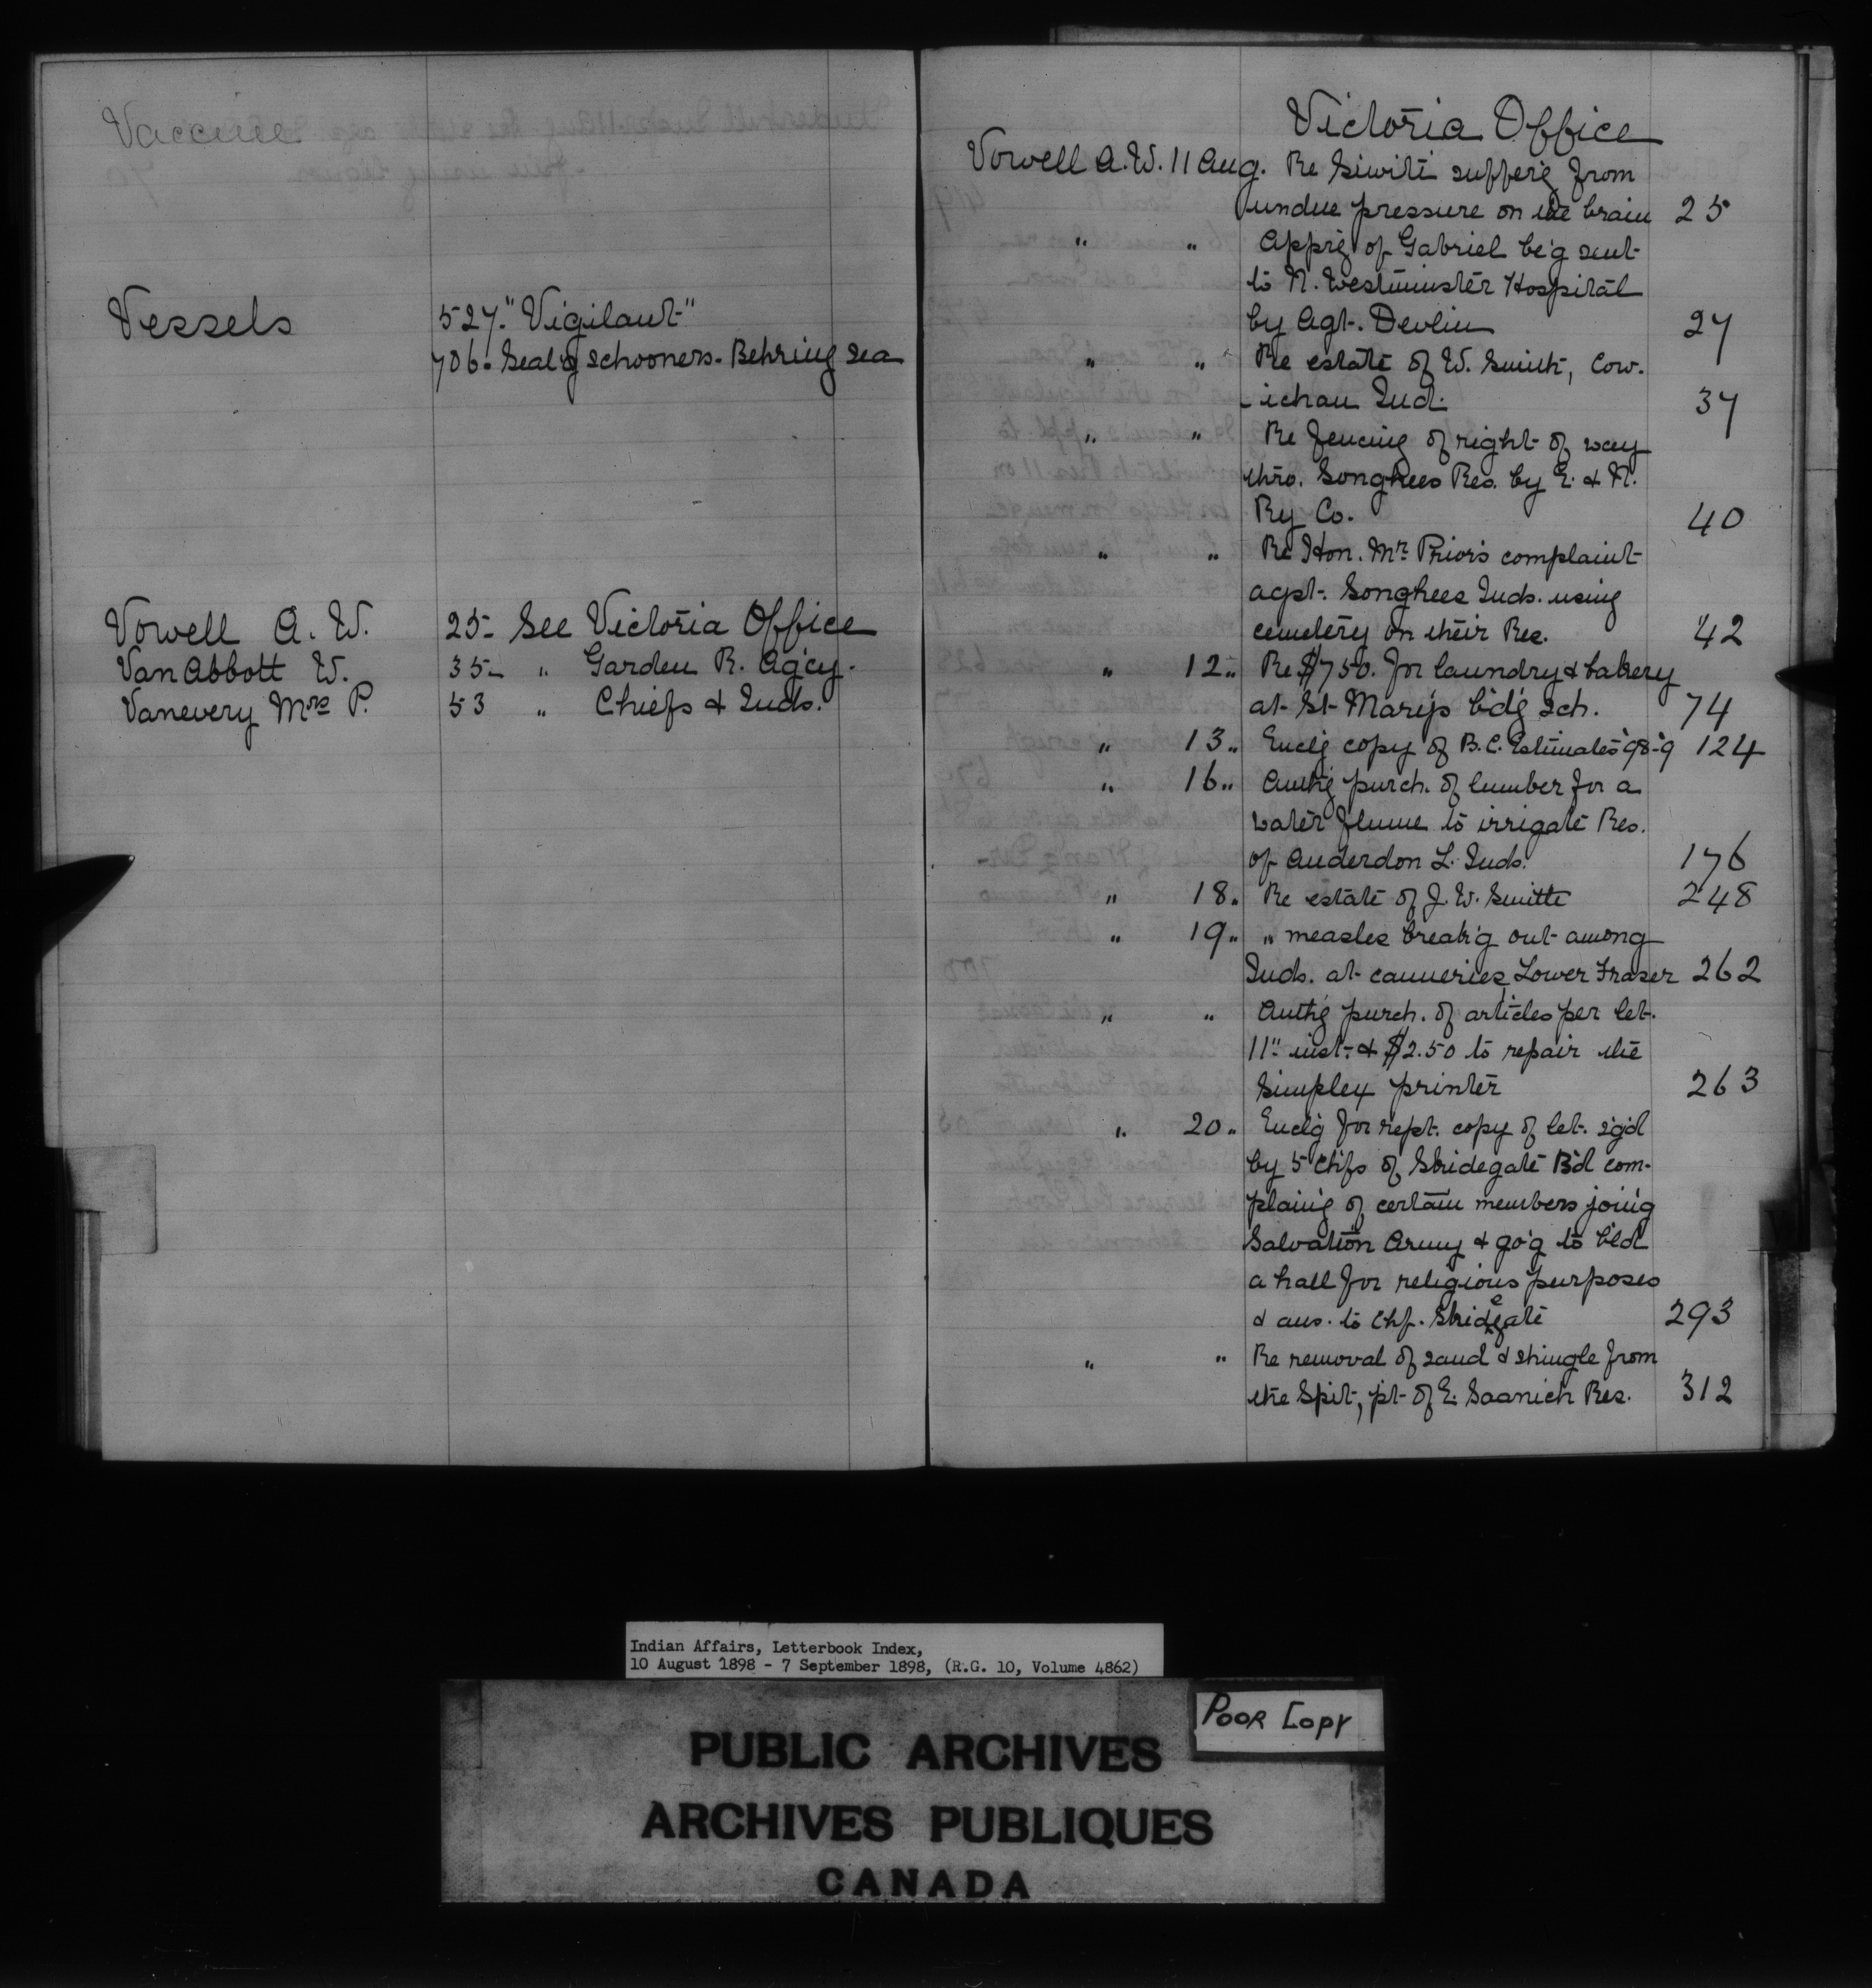 Vaccine
Vessels
527. "Vigilant"
706. Seal'g schooners. Behring Sea
Vowell A. W. 25- See Victoria Office
Van Abbott W. 35- " Garden R. Ag'cy.
Vanevery Mrs P. 53 " Chiefs & Inds.
Victoria Office
Vowell A. W. 11 Aug. Re Siwiti suffer'g from
undue pressure on the brain 25
" " Appr'g of Gabriel be'g sent
to N. Westminster Hospital
by Agt. Devlin 27
" " Re estate of W. Smith, Cow-
-ichan Ind. 37
" " Re fencing of right of way
thro. Songhees Res. by E. & N.
Ry Co. 40
" " Re Hon. Mr Prior's complaint
agst. Songhees Inds. using
cemetery on their Res. 42
" 12 " Re $750. for laundry & bakery
at St Mary's b'd'g Sch. 74
" 13 " Encl'g copy of B.C. Estimates '98-'9 124
" 16 " Auth'g purch. of lumber for a
water flume to irrigate Res.
of Anderdon L. Inds. 176
" 18 " Re estate of J. W. Smith 248
" 19 " " measles break'g out among
Inds. at canneries, Lower Fraser 262
" " Auth'g purch. of articles per let.
11" inst. & $2.50 to repair the
Simplex printer 263
" 20 " Encl'g for rept. copy of let. sg'd
by 5 Chfs of Skidegate B'd com-
plain'g of certain members join'g
Salvation Army & go'g to b'ld
a hall for religious purposes
& ans. to Chf. Skidegate 293
" " Re removal of sand & shingle from
the Spit, pt of E. Saanich Res. 312
Indian Affairs, Letterbook Index,
10 August 1898 - 7 September 1898, (R.G. 10, Volume 4862)
POOR COPY
PUBLIC ARCHIVES
ARCHIVES PUBLIQUES
CANADA